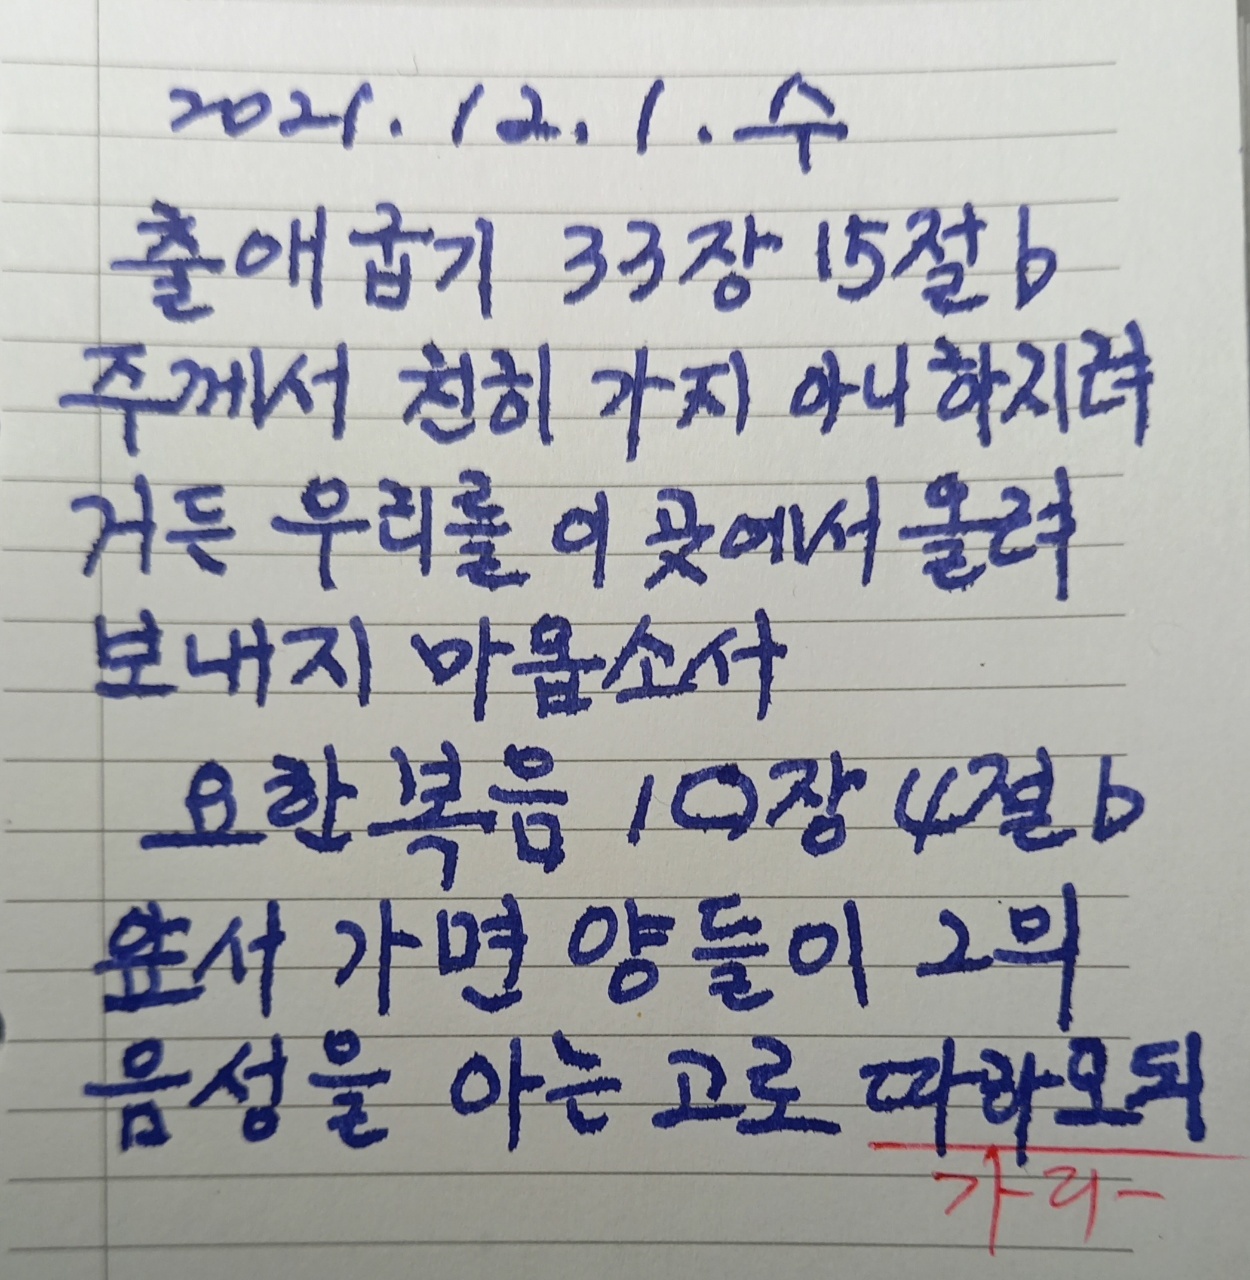 2021. 12. 1. 수
출애굽기 33장 15절 b
주께서 친히 가지 아니하지려
거든 우리를 이 곳에서 올려
보내지 마옵소서
요한복음 10장 4절 b
앞서 가면 양들이 그의
음성을 아는 고로 따라오되